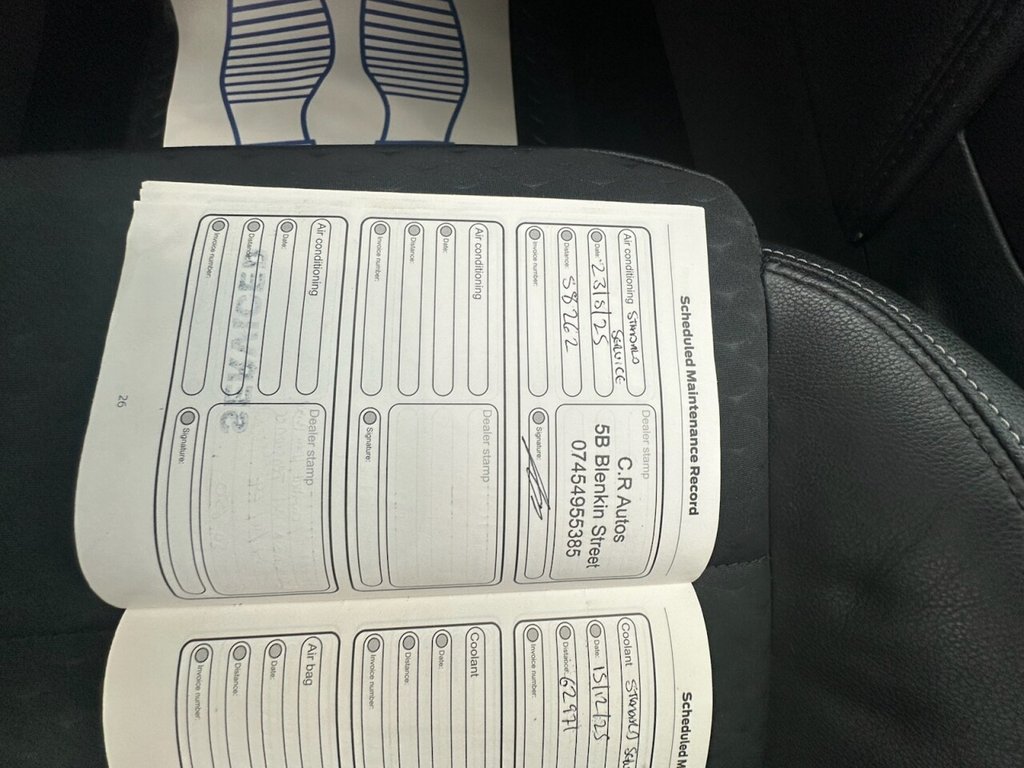 Scheduled Maintenance Record
Air conditioning STANDARD
SERVICE
Date: 23/5/25
Distance: 58262
Invoice number:
Dealer stamp
C.R Autos
5B Blenkin Street
07454955385
Signature:
Air conditioning
Date:
Distance:
Invoice number:
Dealer stamp
Signature:
Air conditioning
Date:
Distance:
Invoice number:
Dealer stamp
Signature:
26
Scheduled M
Coolant STANDARD
Date: 15/12/25
Distance: 62971
Invoice number:
Coolant
Date:
Distance:
Invoice number:
Air bag
Date:
Distance:
Invoice number: